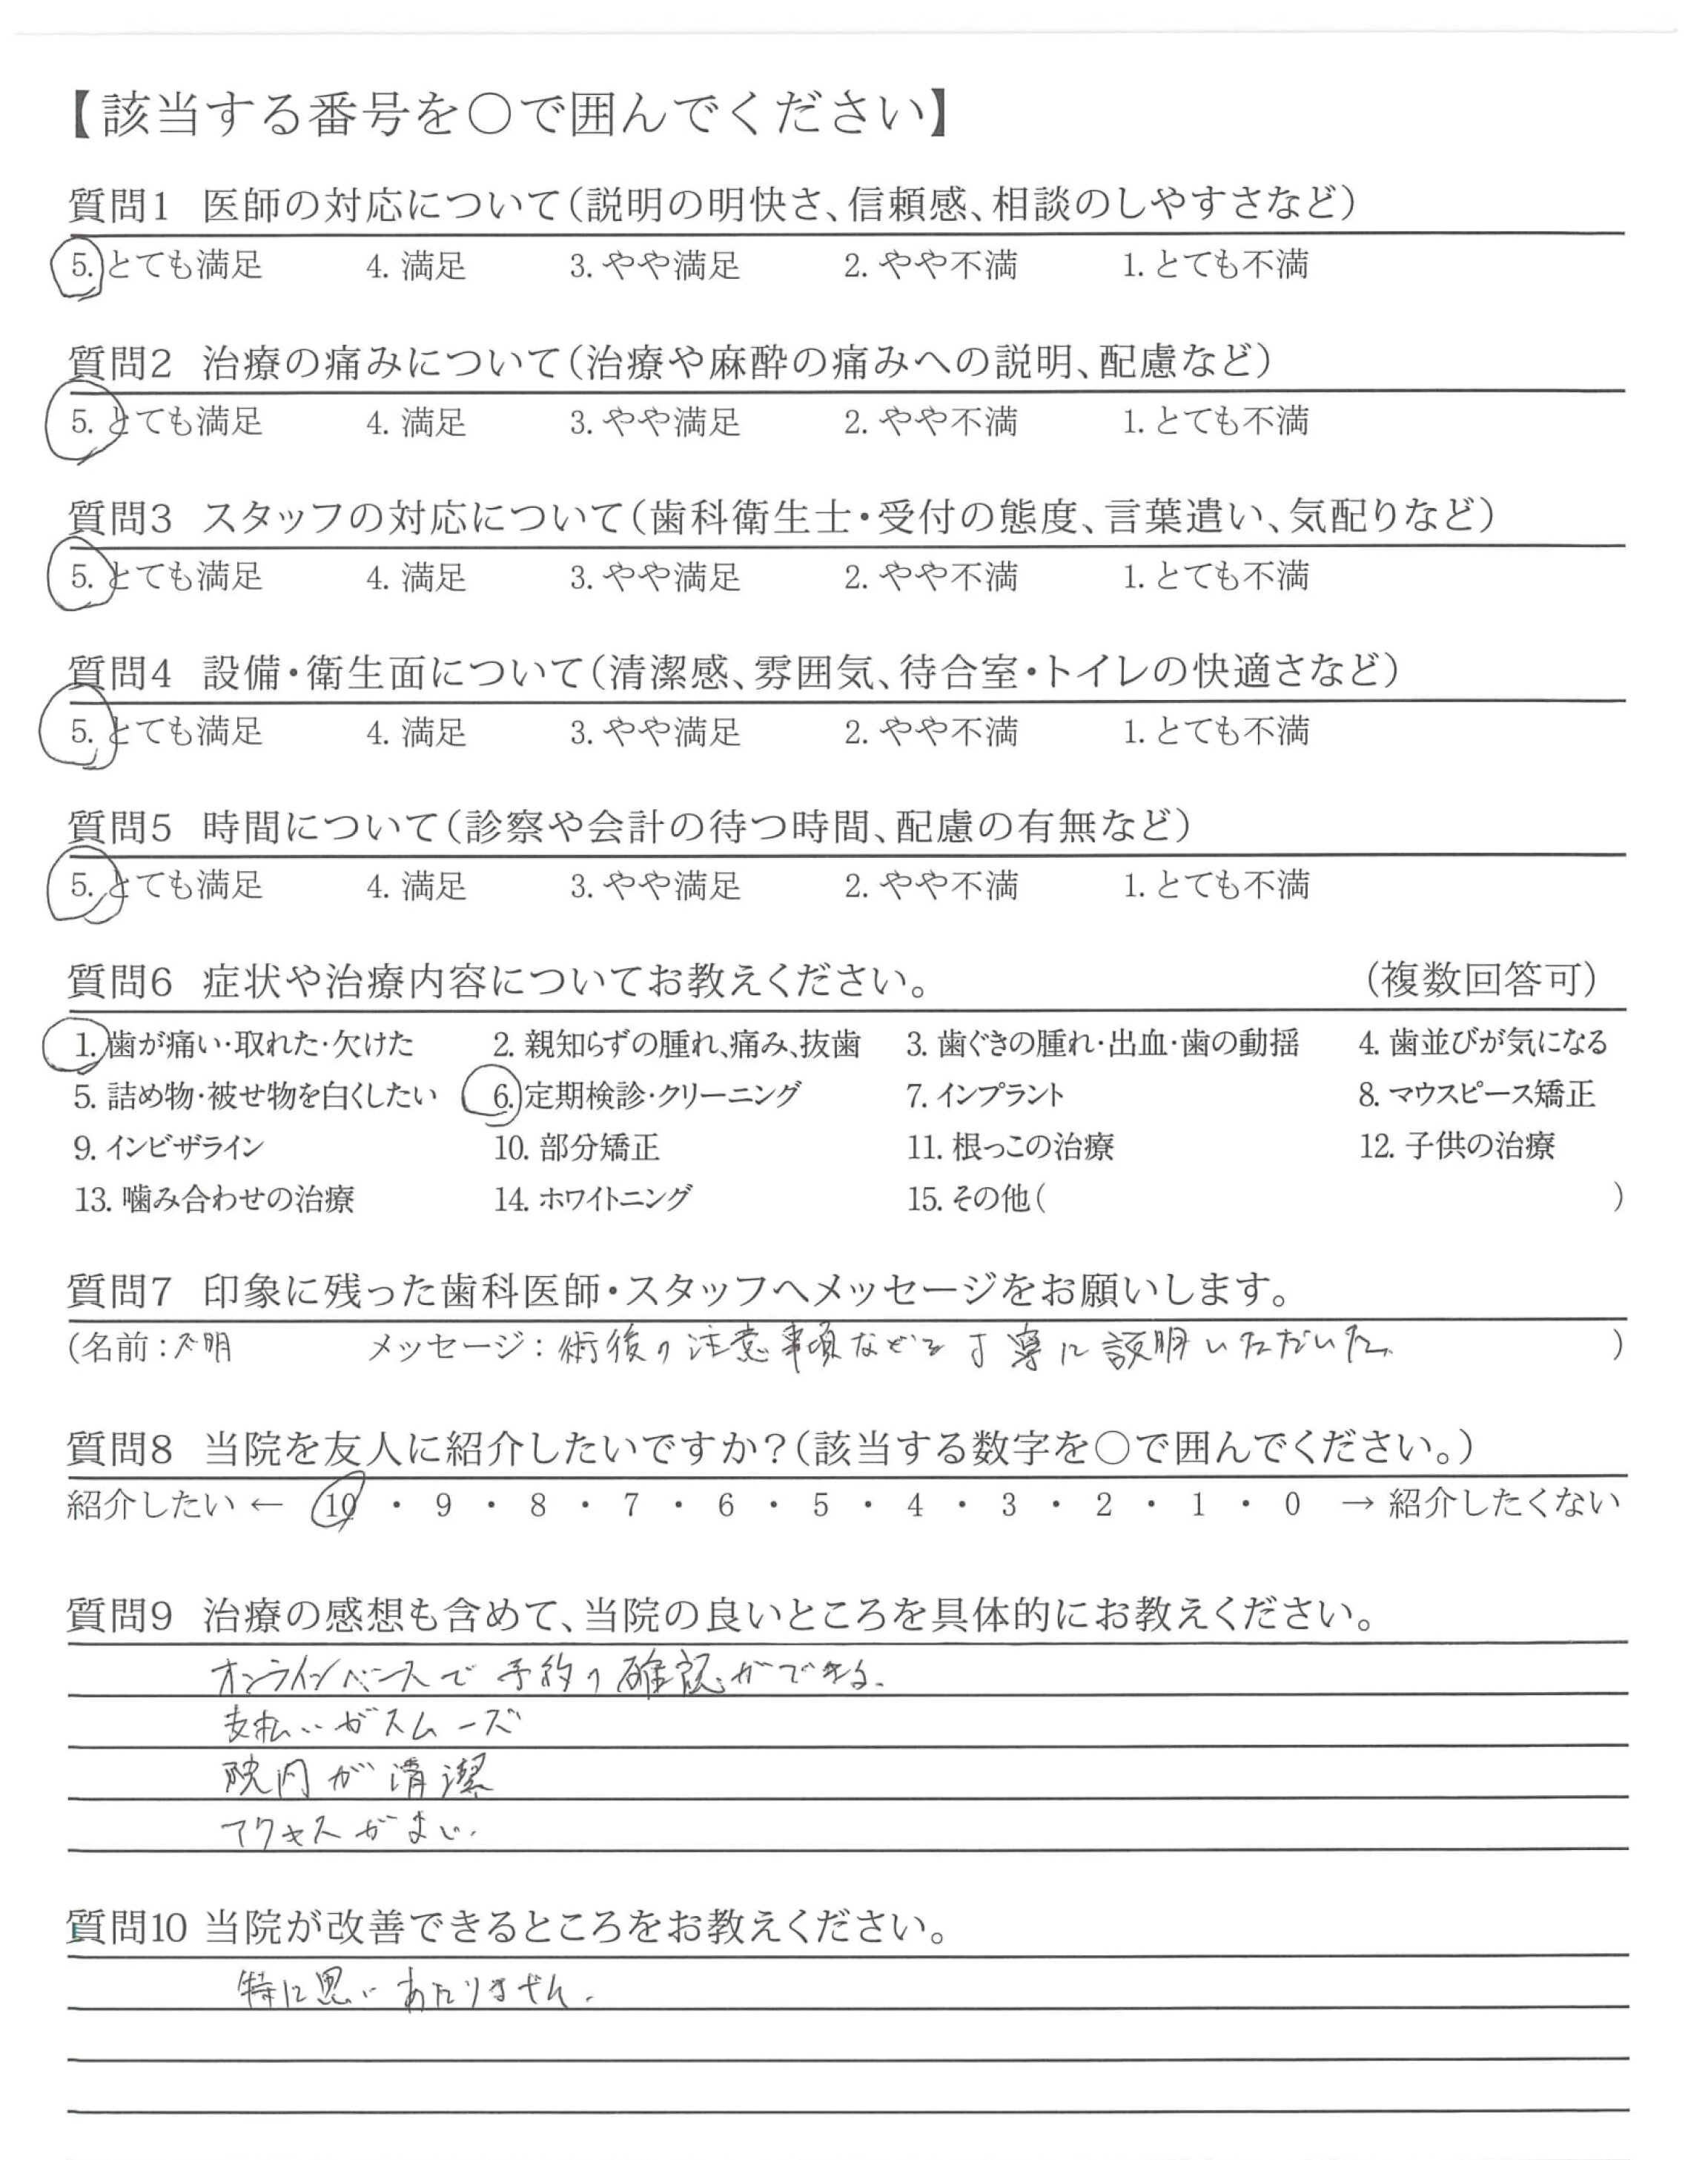 【該当する番号を○で囲んでください】
質問1 医師の対応について(説明の明快さ、信頼感、相談のしやすさなど)
5. とても満足 4. 満足 3. やや満足 2. やや不満 1. とても不満
質問2 治療の痛みについて(治療や麻酔の痛みへの説明、配慮など)
5. とても満足 4. 満足 3. やや満足 2. やや不満 1. とても不満
質問3 スタッフの対応について(歯科衛生士・受付の態度、言葉遣い、気配りなど)
5. とても満足 4. 満足 3. やや満足 2. やや不満 1. とても不満
質問4 設備・衛生面について(清潔感、雰囲気、待合室・トイレの快適さなど)
5. とても満足 4. 満足 3. やや満足 2. やや不満 1. とても不満
質問5 時間について(診察や会計の待つ時間、配慮の有無など)
5. とても満足 4. 満足 3. やや満足 2. やや不満 1. とても不満
質問6 症状や治療内容についてお教えください。 (複数回答可)
1. 歯が痛い・取れた・欠けた 2. 親知らずの腫れ、痛み、抜歯 3. 歯ぐきの腫れ・出血・歯の動揺 4. 歯並びが気になる
5. 詰め物・被せ物を白くしたい 6. 定期検診・クリーニング 7. インプラント 8. マウスピース矯正
9. インビザライン 10. 部分矯正 11. 根っこの治療 12. 子供の治療
13. 噛み合わせの治療 14. ホワイトニング 15. その他( )
質問7 印象に残った歯科医師・スタッフへメッセージをお願いします。
(名前:不明 メッセージ:術後の注意事項などを丁寧に説明いただいた。 )
質問8 当院を友人に紹介したいですか?(該当する数字を○で囲んでください。)
紹介したい ← 10 ・ 9 ・ 8 ・ 7 ・ 6 ・ 5 ・ 4 ・ 3 ・ 2 ・ 1 ・ 0 → 紹介したくない
質問9 治療の感想も含めて、当院の良いところを具体的にお教えください。
オンラインベースで予約の確認ができる。
支払いがスムーズ
院内が清潔
アクセスがよい。
質問10 当院が改善できるところをお教えください。
特に思いあたりません。